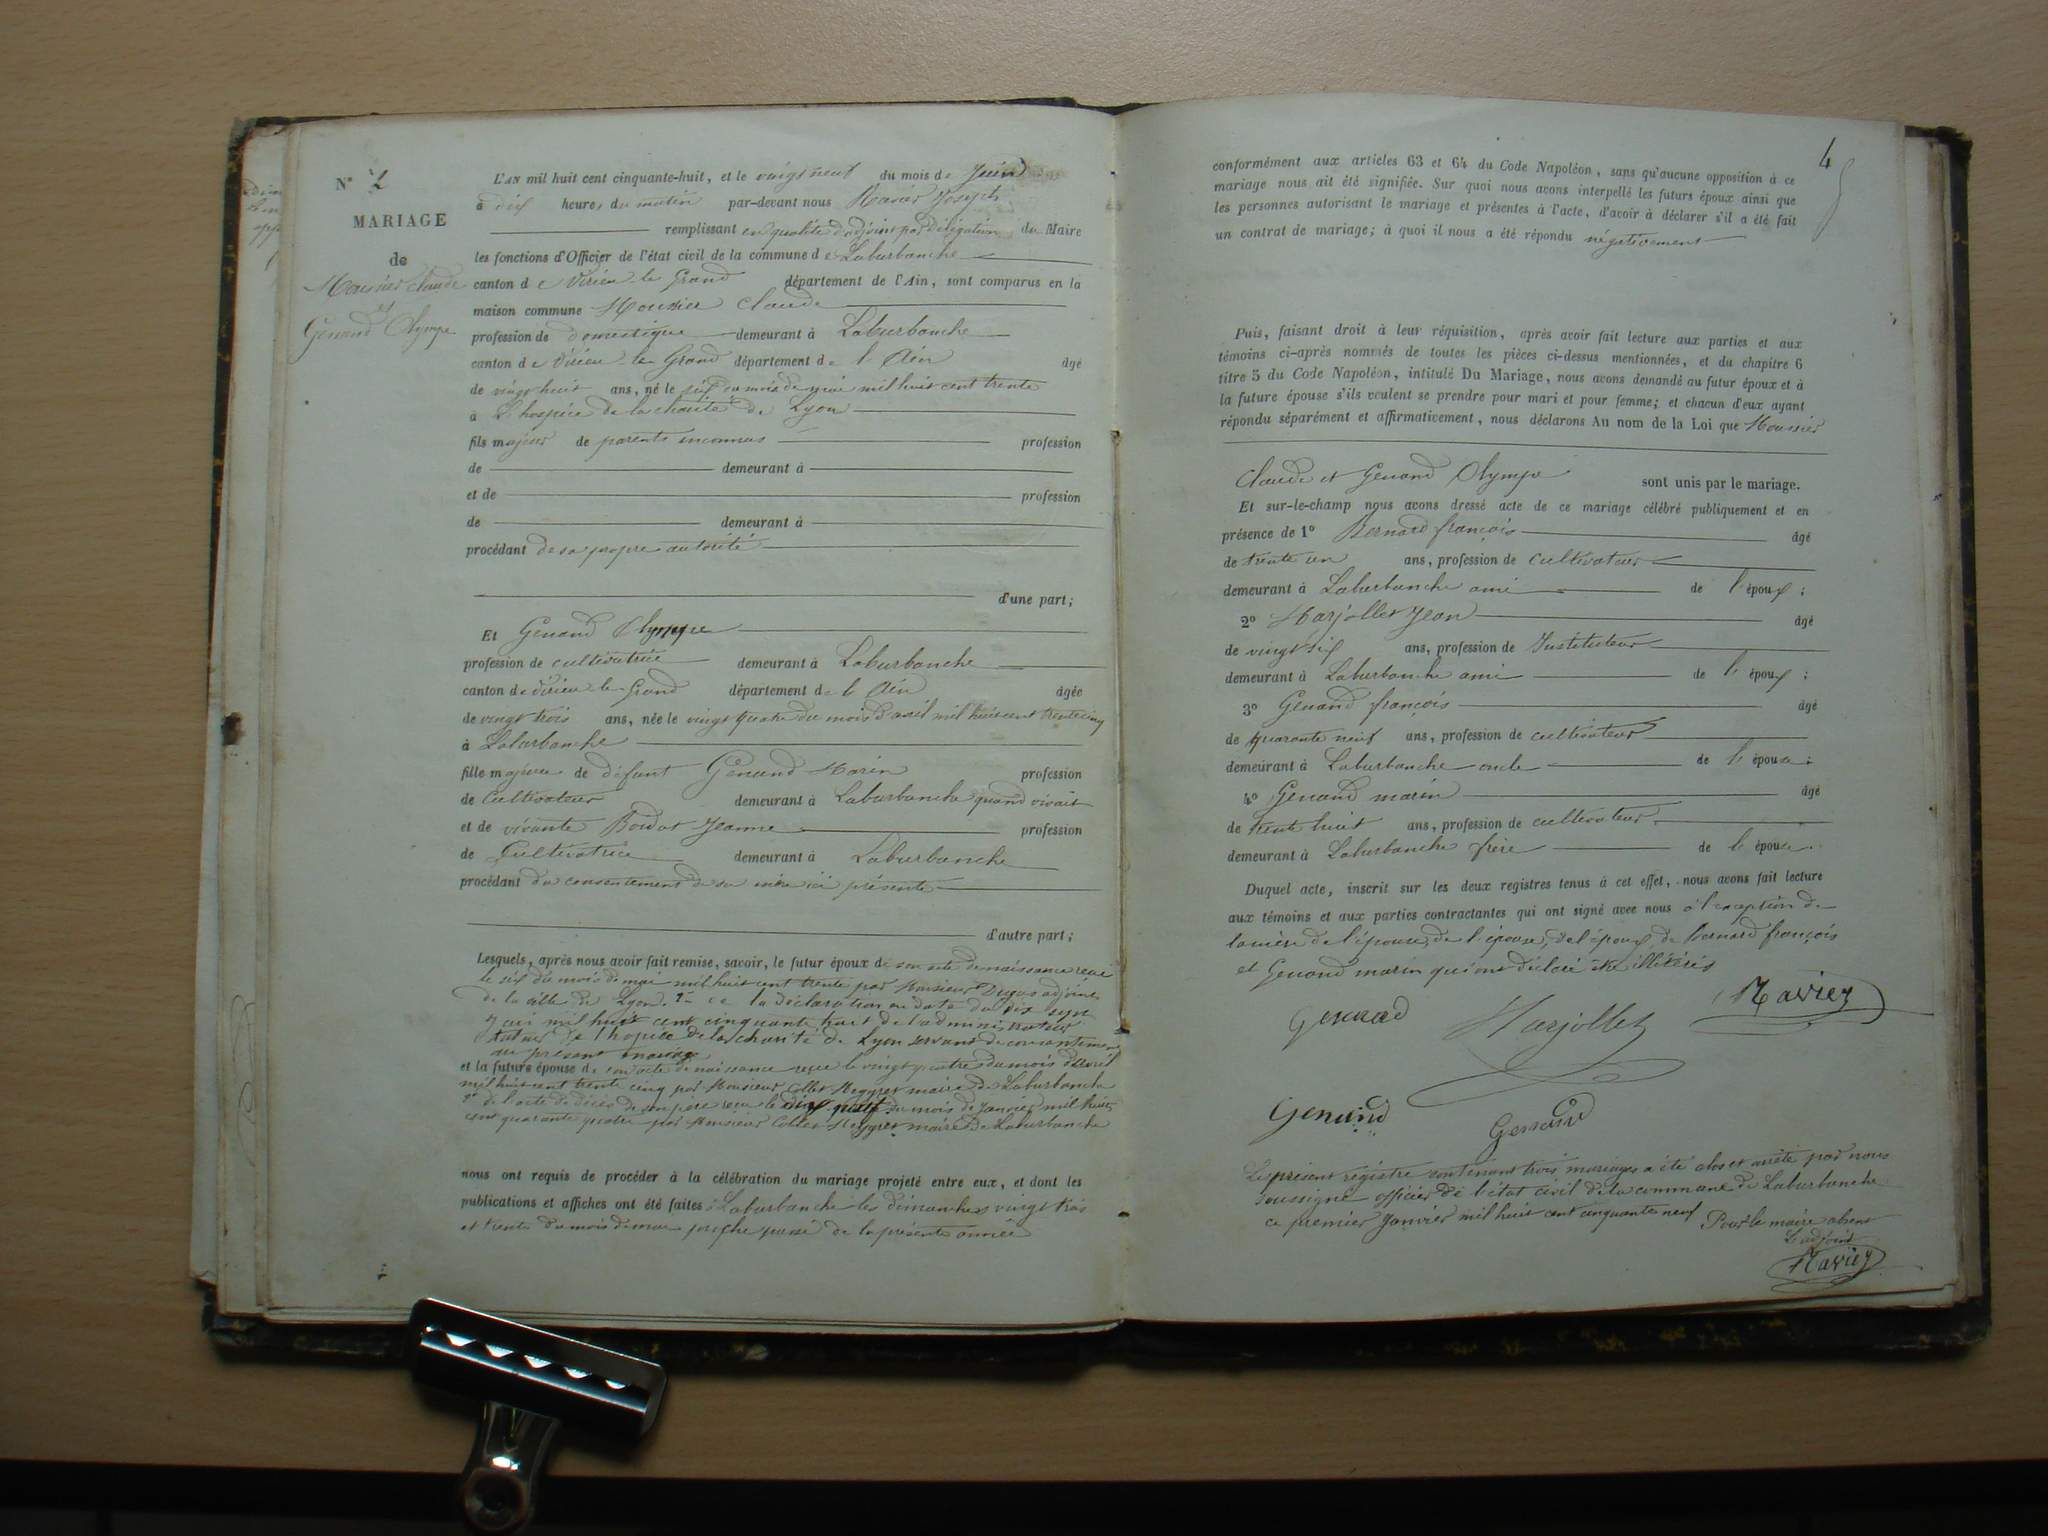 N° 2
MARIAGE
de
Mousier Claude
et
Genand Olympe
L'AN mil huit cent cinquante-huit, et le vingt neuf du mois de Juin
à dix heures du matin par-devant nous Ravier Joseph
remplissant en qualité d'adjoint par délégation du Maire
les fonctions d'Officier de l'état civil de la commune de Laburbanche
canton de Virieu le Grand département de l'Ain, sont comparus en la
maison commune Mousier Claude
profession de domestique demeurant à Laburbanche
canton de Virieu le Grand département de l'Ain âgé
de vingt huit ans, né le six du mois de mai mil huit cent trente
à L'hospice de la charité de Lyon
fils majeur de parents inconnus profession
de demeurant à
et de profession
de demeurant à
procédant de sa propre autorité
d'une part;
Et Genand Olympe
profession de cultivatrice demeurant à Laburbanche
canton de Virieu le Grand département de l'Ain âgée
de vingt trois ans, née le vingt quatre du mois d'avril mil huit cent trente cinq
à Laburbanche
fille majeure de défunt Genand Marin profession
de Cultivateur demeurant à Laburbanche quand vivait
et de vivante Jeanne profession
de Cultivatrice demeurant à Laburbanche
procédant du consentement de sa mère ici présente
d'autre part;
Lesquels, après nous avoir fait remise, savoir, le futur époux de son acte de naissance reçu
le six du mois de mai mil huit cent trente par Monsieur Dugas adjoint
de la ville de Lyon. 2° de la déclaration en date du dix sept
mil huit cent cinquante huit de l'administrateur
tuteur de l'hospice de la charité de Lyon servant de consentement
au présent mariage
et la future épouse de son acte de naissance reçu le vingt quatre du mois d'avril
mil huit cent trente cinq par Monsieur Collet Meygret maire de Laburbanche
2° de l'acte de décès de son père reçu le dix neuf du mois de Janvier mil huit
cent quarante quatre par Monsieur Collet Meygret maire de Laburbanche
nous ont requis de procéder à la célébration du mariage projeté entre eux, et dont les
publications et affiches ont été faites à Laburbanche les dimanches vingt trois
et trente du mois de mai proche passé de la présente année
4
conformément aux articles 63 et 64 du Code Napoléon, sans qu'aucune opposition à ce
mariage nous ait été signifiée. Sur quoi nous avons interpellé les futurs époux ainsi que
les personnes autorisant le mariage et présentes à l'acte, d'avoir à déclarer s'il a été fait
un contrat de mariage; à quoi il nous a été répondu négativement
Puis, faisant droit à leur réquisition, après avoir fait lecture aux parties et aux
témoins ci-après nommés de toutes les pièces ci-dessus mentionnées, et du chapitre 6
titre 5 du Code Napoléon, intitulé Du Mariage, nous avons demandé au futur époux et à
la future épouse s'ils veulent se prendre pour mari et pour femme; et chacun d'eux ayant
répondu séparément et affirmativement, nous déclarons Au nom de la Loi que Mousier
Claude et Genand Olympe sont unis par le mariage.
Et sur-le-champ nous avons dressé acte de ce mariage célébré publiquement et en
présence de 1° Bernard françois âgé
de trente un ans, profession de cultivateur
demeurant à Laburbanche ami de l'époux;
2° Marjollet Jean âgé
de vingt six ans, profession de Instituteur
demeurant à Laburbanche ami de l'époux;
3° Genand françois âgé
de quarante neuf ans, profession de cultivateur
demeurant à Laburbanche oncle de l'épouse;
4° Genand marin âgé
de trente huit ans, profession de cultivateur
demeurant à Laburbanche frère de l'épouse.
Duquel acte, inscrit sur les deux registres tenus à cet effet, nous avons fait lecture
aux témoins et aux parties contractantes qui ont signé avec nous à l'exception de
la mère de l'épouse, de l'épouse, de l'époux, de Bernard françois
et Genand marin qui ont déclaré être illitérés
Genand Marjollet Ravier
Genand Genand
Le présent régistre contenant trois mariages a été clos et arrêté par nous
soussigné officier de l'état civil de la commune de Laburbanche
ce premier Janvier mil huit cent cinquante neuf Pour le maire absent
L'adjoint
Ravier